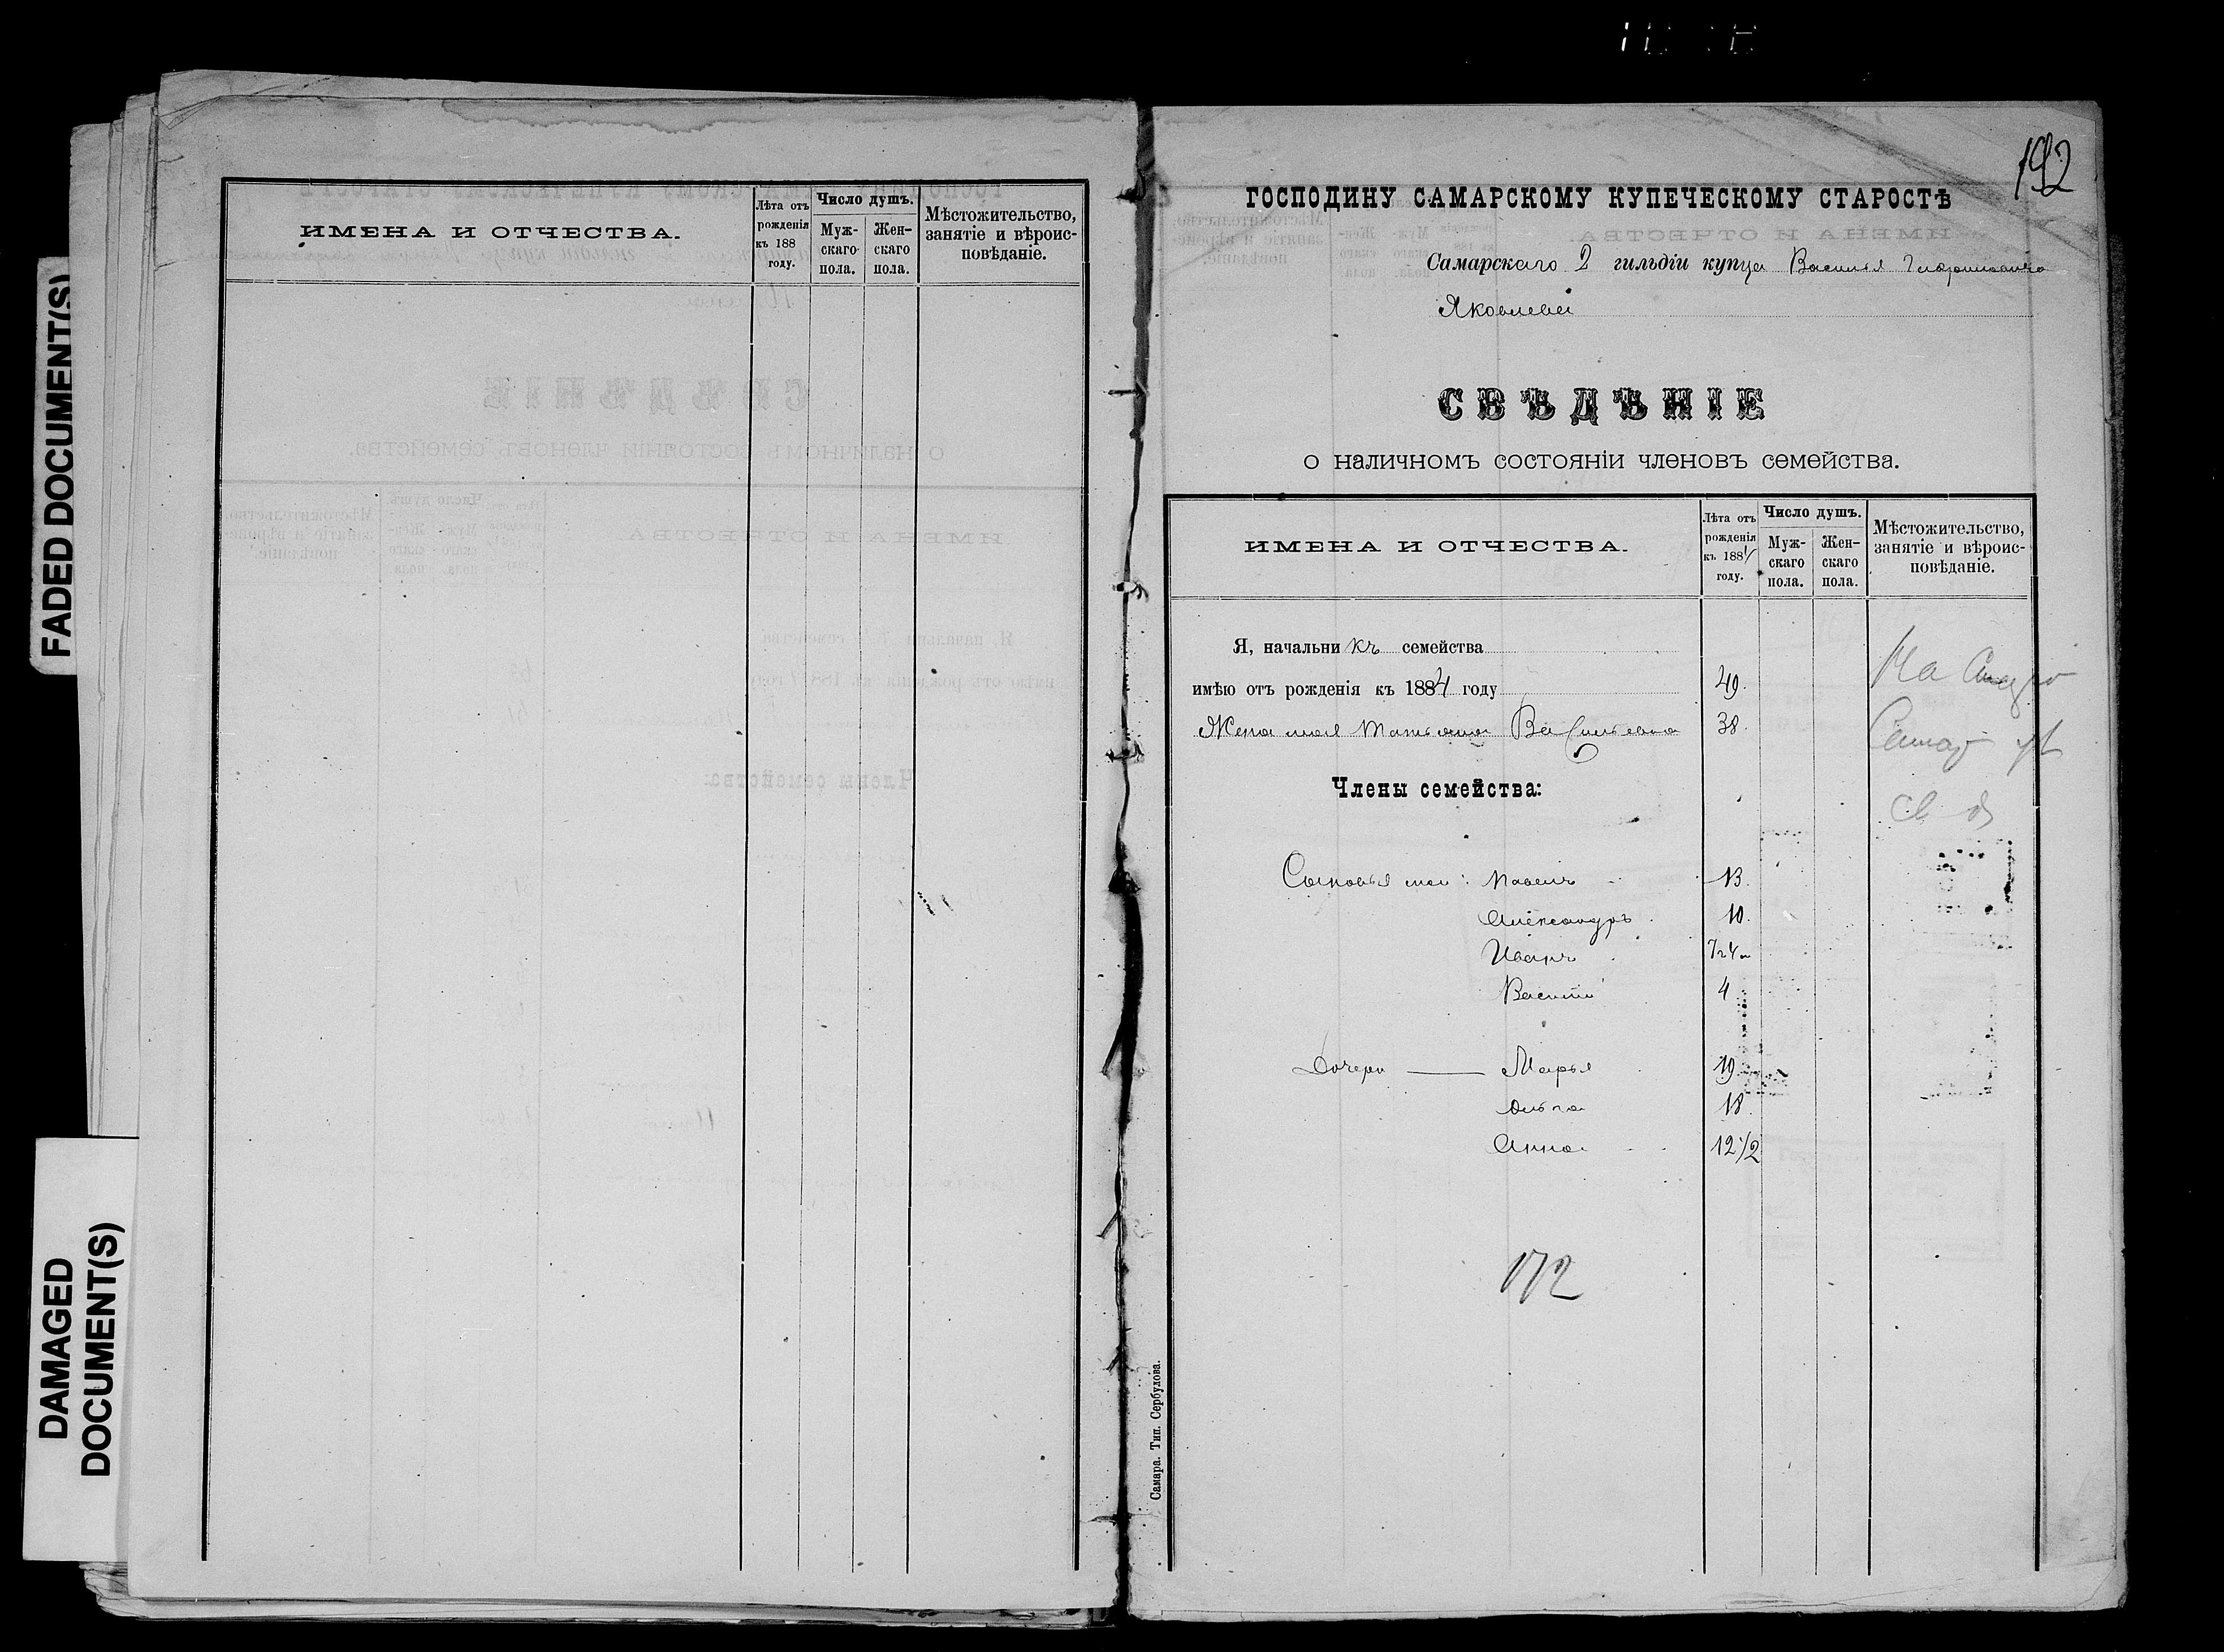 FADED DOCUMENT(S)
DAMAGED
DOCUMENT(S)
ИМЕНА И ОТЧЕСТВА.
Лѣта отъ
рожденія
къ 188
году.
Число душъ.
Муж-
скаго
пола.
Жен-
скаго
пола.
Мѣстожительство,
занятіе и вѣроис-
повѣданіе.
192
ГОСПОДИНУ САМАРСКОМУ КУПЕЧЕСКОМУ СТАРОСТѢ
Самарскаго 2 гильдіи купца Василья
Яковлева
СВѢДѢНІЕ
о наличномъ состояніи членовъ семейства.
ИМЕНА И ОТЧЕСТВА.
Лѣта отъ
рожденія
къ 1884
году.
Число душъ.
Муж-
скаго
пола.
Жен-
скаго
пола.
Мѣстожительство,
занятіе и вѣроис-
повѣданіе.
Я, начальникъ семейства
имѣю отъ рожденія къ 1884 году 49.
Жена моя Татьяна Васильевна 38.
Члены семейства:
Сыновья мои: Павелъ 13.
Александръ 10.
Иванъ
Василий 4
Дочери — Марья 19.
Ольга 18.
Анна 12 1/2
172
Самара. Тип. Сербулова.